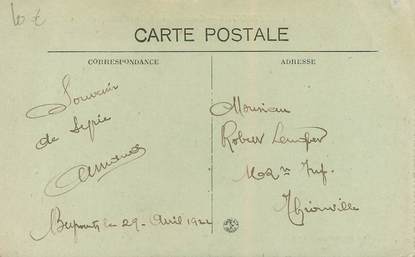 10 €
CARTE POSTALE
CORRESPONDANCE
ADRESSE
Souvenir
de Syrie
Beyrouth le 29 Avril 192
Monsieur
Robert
Inf.
Thionville